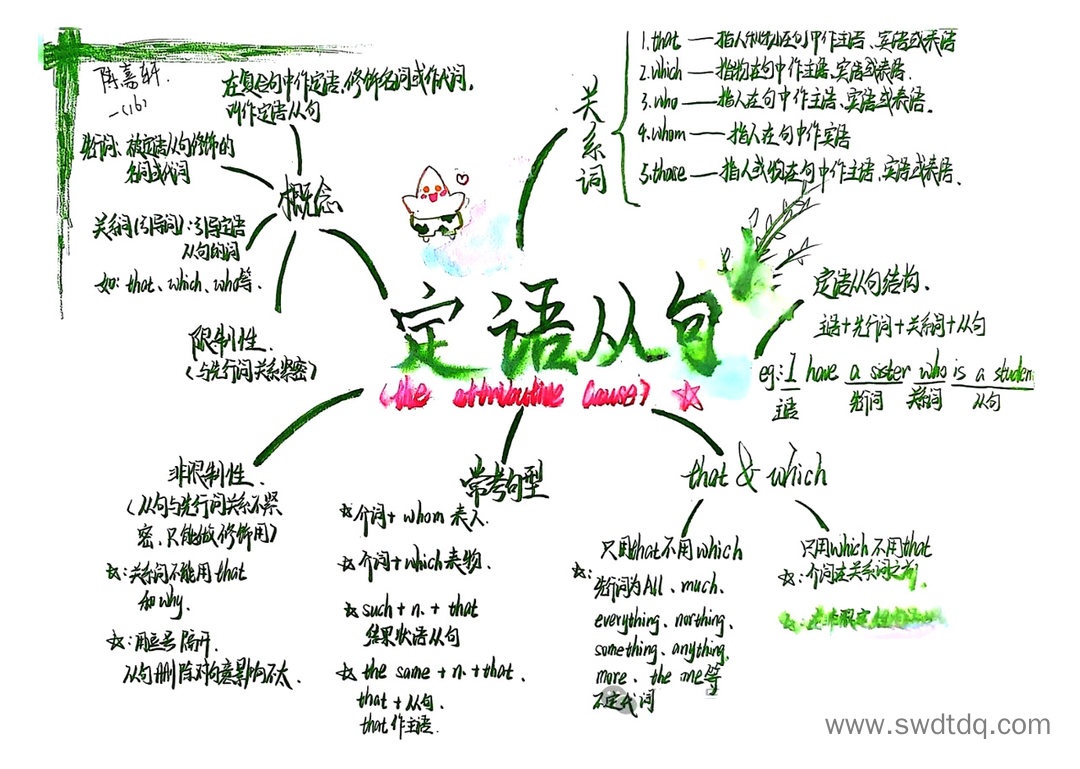 陈嘉轩.
一(16)
在复合句中作定语,修饰名词或作代词,
叫作定语从句
先行词: 被定语从句修饰的
名词或代词
概念
关系词(引导词):引导定语
从句的词
如: that、which、who等.
限制性.
(与先行词关系紧密)
关系词
1.that — 指人和物在句中作主语、宾语或表语
2.which — 指物在句中作主语、宾语或表语.
3.who — 指人在句中作主语、宾语或表语.
4.whom — 指人在句中作宾语
5.those — 指人或物在句中作主语、宾语或表语.
定语从句
(the attributive Cause) ☆
定语从句结构.
主语+先行词+关系词+从句
eg.: I have a sister who is a studen
主语 先行词 关系词 从句
非限制性.
(从句与先行词关系不紧
密、只能做修饰用)
☆:关系词不能用that
和why.
☆:用逗号隔开.
从句删除对句意影响不大.
常考句型
☆介词+whom表人.
☆介词+which表物.
☆such+n.+that
结果状语从句
☆the same+n.+that.
that+从句.
that作主语.
that & which
只用that不用which
☆:
先行词为All、much、
everything、northing、
something、anything、
more、the one等
不定代词
只用which不用that
☆:介词在关系词之前.
www.swdtdq.com